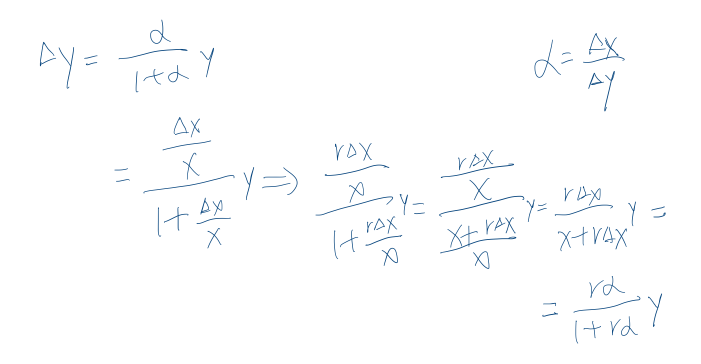 Δy = \frac{α}{1+α} y
α = \frac{Δx}{Δy}
= \frac{\frac{Δx}{x}}{1+\frac{Δx}{x}} y ⇒ \frac{\frac{rΔx}{x}}{1+\frac{rΔx}{x}} y = \frac{\frac{rΔx}{x}}{\frac{x+rΔx}{x}} y = \frac{rΔx}{x+rΔx} y =
= \frac{rα}{1+rα} y